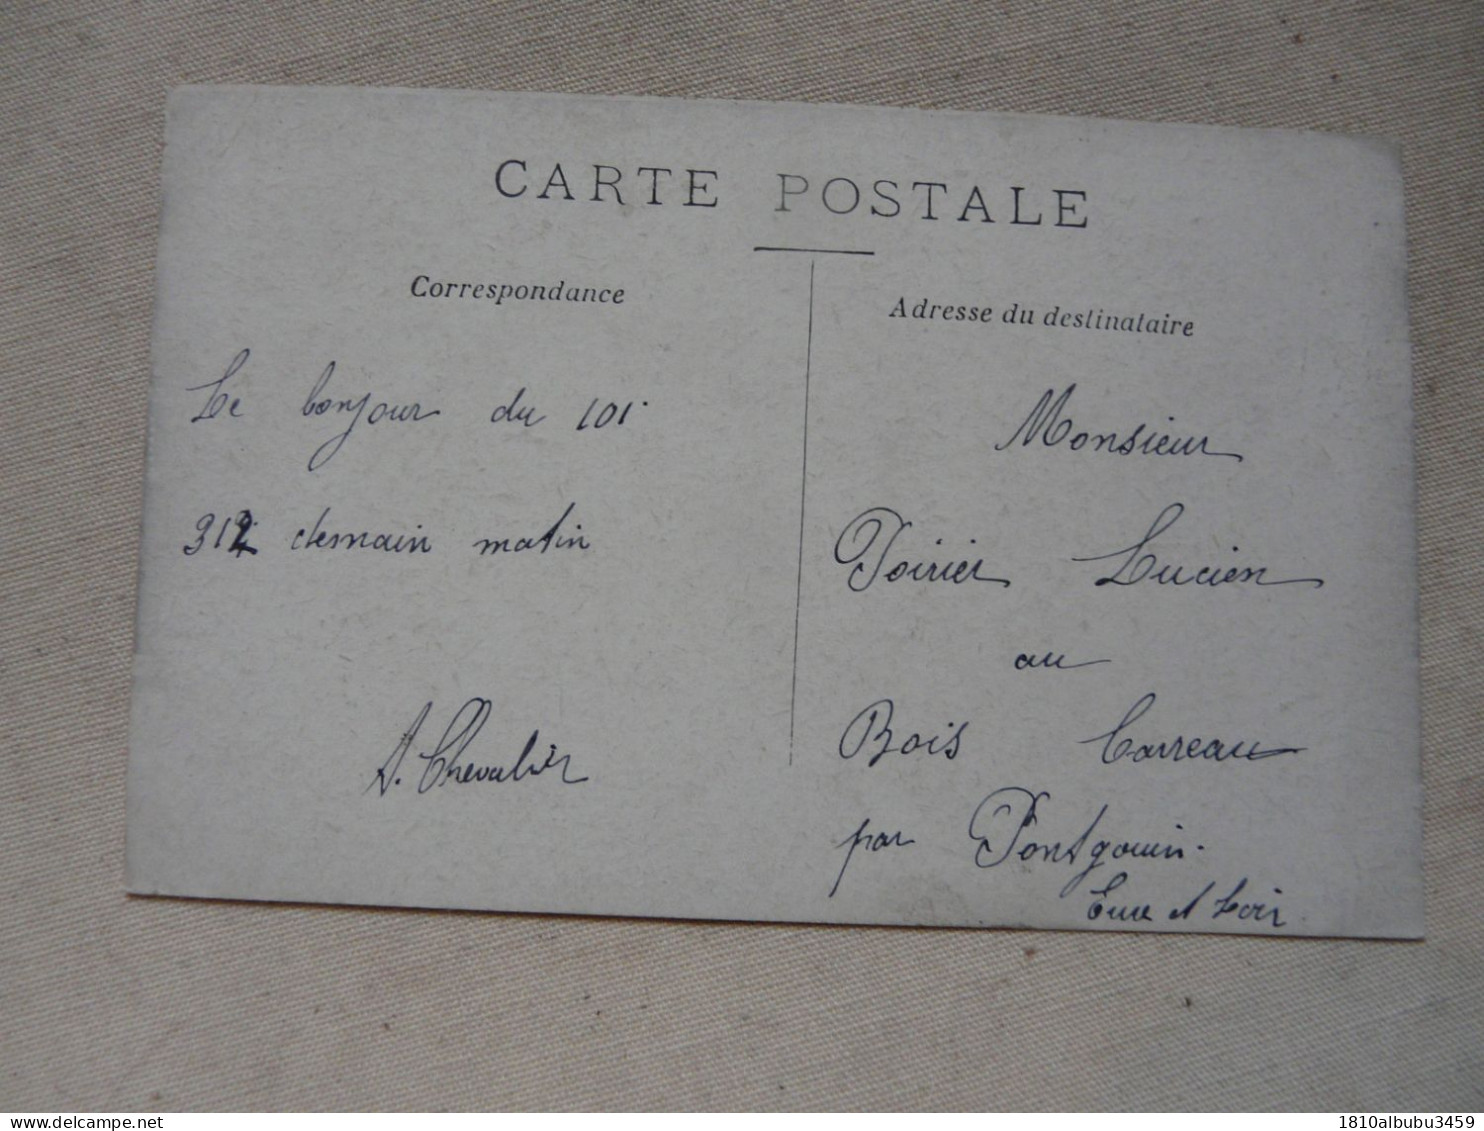 CARTE POSTALE
Correspondance
Le bonjour du 101.
312 demain matin
A. Chevalier
Adresse du destinataire
Monsieur
Poirier Lucien
au
Bois Carreau
par Pontgouin.
Eure et Loir
1810albubu3459